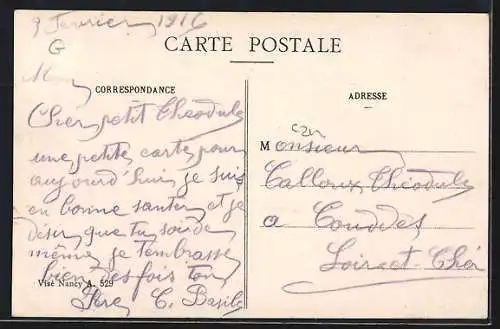 9 Fevrier 1916
G
CARTE POSTALE
CORRESPONDANCE
Mon
Cher petit Théodule
une petite carte pour
aujourd'hui je suis
en bonne santer et je
désir que tu soi de
même je t'embrasse
bien des fois ton
Père C. Basile
Visé Nancy A. 529
ADRESSE
Monsieur
Calloux Théodule
a Couddes
Loir et Cher